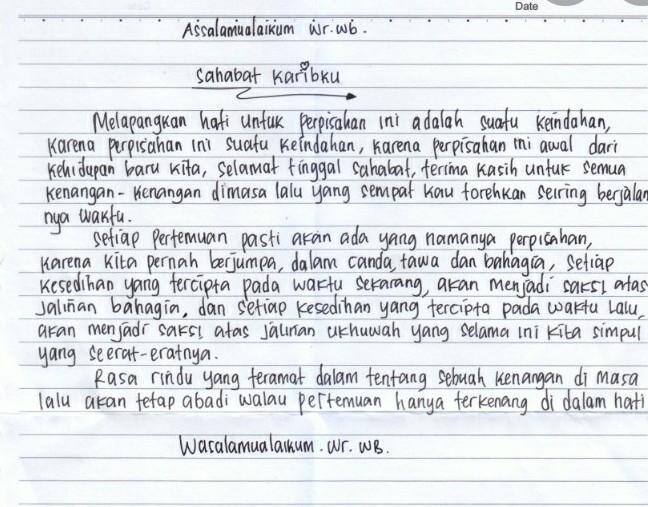 Date
Assalamualaikum Wr. Wb.
Sahabat Karibku
Melapangkan hati untuk perpisahan ini adalah suatu keindahan,
karena perpisahan ini suatu keindahan, karena perpisahan ini awal dari
kehidupan baru kita, selamat tinggal sahabat, terima kasih untuk semua
kenangan - kenangan dimasa lalu yang sempat kau torehkan seiring berjalan
nya waktu.
Setiap pertemuan pasti akan ada yang namanya perpisahan,
karena kita pernah berjumpa, dalam canda, tawa dan bahagia, setiap
kesedihan yang tercipta pada waktu sekarang, akan menjadi saksi atas
jalinan bahagia, dan setiap kesedihan yang tercipta pada waktu lalu,
akan menjadi saksi atas jalinan ukhuwah yang selama ini kita simpul
yang seerat-eratnya.
Rasa rindu yang teramat dalam tentang sebuah kenangan di masa
lalu akan tetap abadi walau pertemuan hanya terkenang di dalam hati
Wasalamualaikum. Wr. WB.